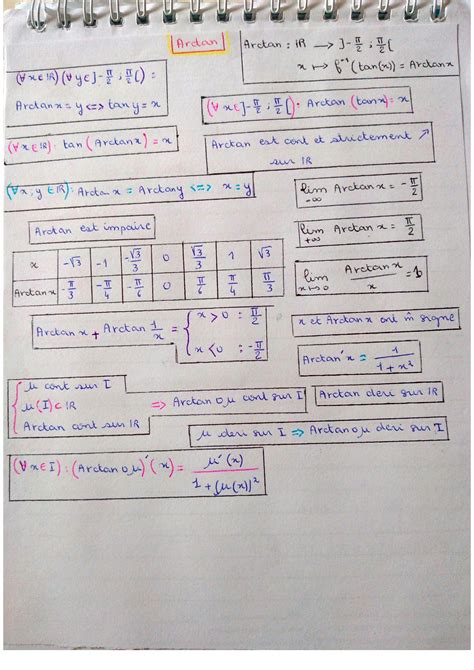 Arctan
Arctan : IR → ]-π/2 ; π/2[
x ↦ f⁻¹(tan(x)) = Arctanx
(∀x∈IR)(∀y∈]-π/2 ; π/2[) :
Arctanx = y <=> tan y = x
(∀x∈]-π/2 ; π/2[) · Arctan (tanx) = x
(∀x∈IR) · tan (Arctanx) = x
Arctan est cont et strictement ↗
sur IR
(∀x, y ∈ IR) : Arctan x = Arctany <=> x = y
lim Arctan x = -π/2
-∞
Arctan est impaire
lim Arctan x = π/2
+∞
x | -√3 | -1 | -√3/3 | 0 | √3/3 | 1 | √3
Arctanx | -π/3 | -π/4 | -π/6 | 0 | π/6 | π/4 | π/3
lim Arctan x / x = 1
x→0
Arctan x + Arctan 1/x = { x > 0 : π/2
x < 0 : -π/2
x et Arctanx ont m̂ signe
Arctan'x = 1 / 1 + x²
{ μ cont sur I
μ(I) ⊂ IR
Arctan cont sur IR
=> Arctan o μ cont sur I
Arctan deri sur IR
μ deri sur I => Arctan o μ deri sur I
(∀x∈I) : (Arctan o μ)'(x) = μ'(x) / 1 + (μ(x))²